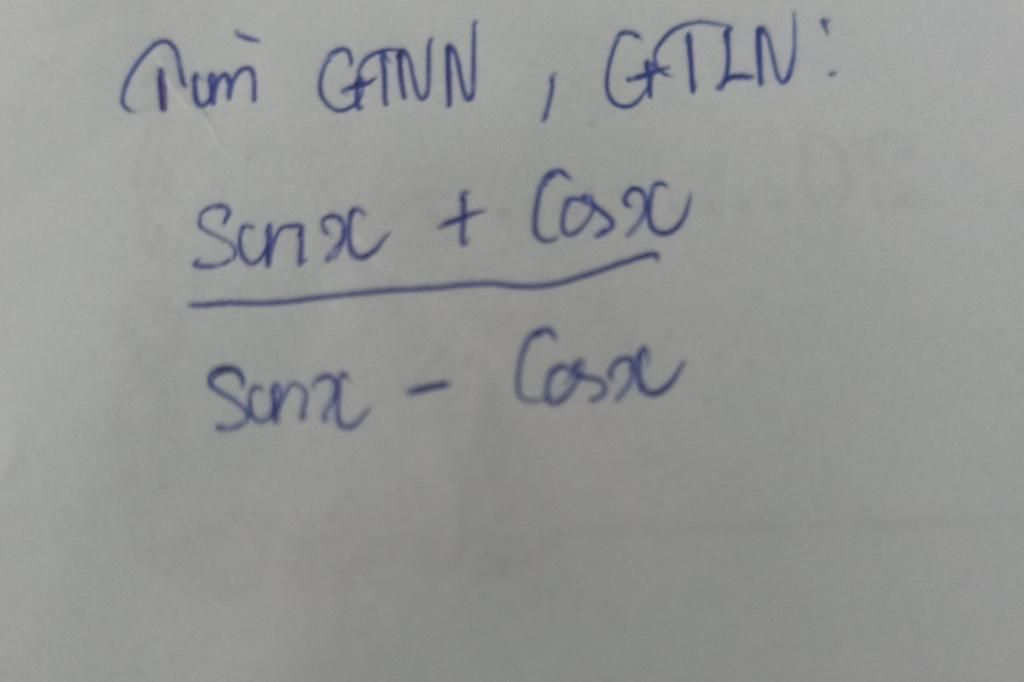 Tìm GTNN, GTLN:
Sinx + Cosx
Sinx - Cosx